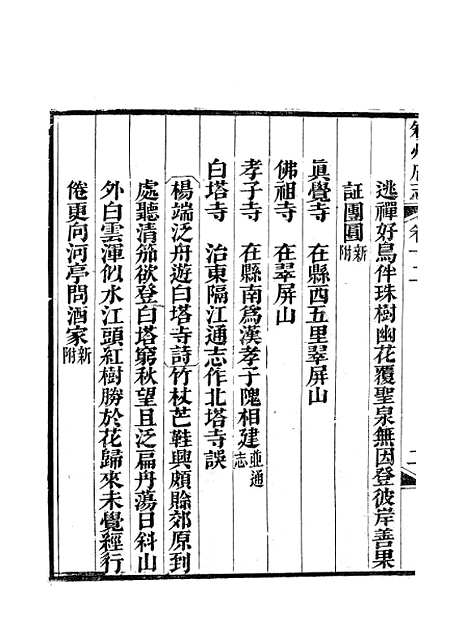 敘州府志 卷十二
二
逃禪好鳥伴珠樹幽花覆聖泉無因登彼岸善果
証團圓新附
眞覺寺 在縣西五里翠屏山
佛祖寺 在翠屏山
孝子寺 在縣南為漢孝子隗相建並通志
白塔寺 治東隔江通志作北塔寺誤
楊端泛舟遊白塔寺詩竹杖芒鞋興頗賒郊原到
處聽清笳欲登白塔窮秋望且泛扁舟蕩日斜山
外白雲渾似水江頭紅樹勝於花歸來未覺經行
倦更向河亭問酒家新附